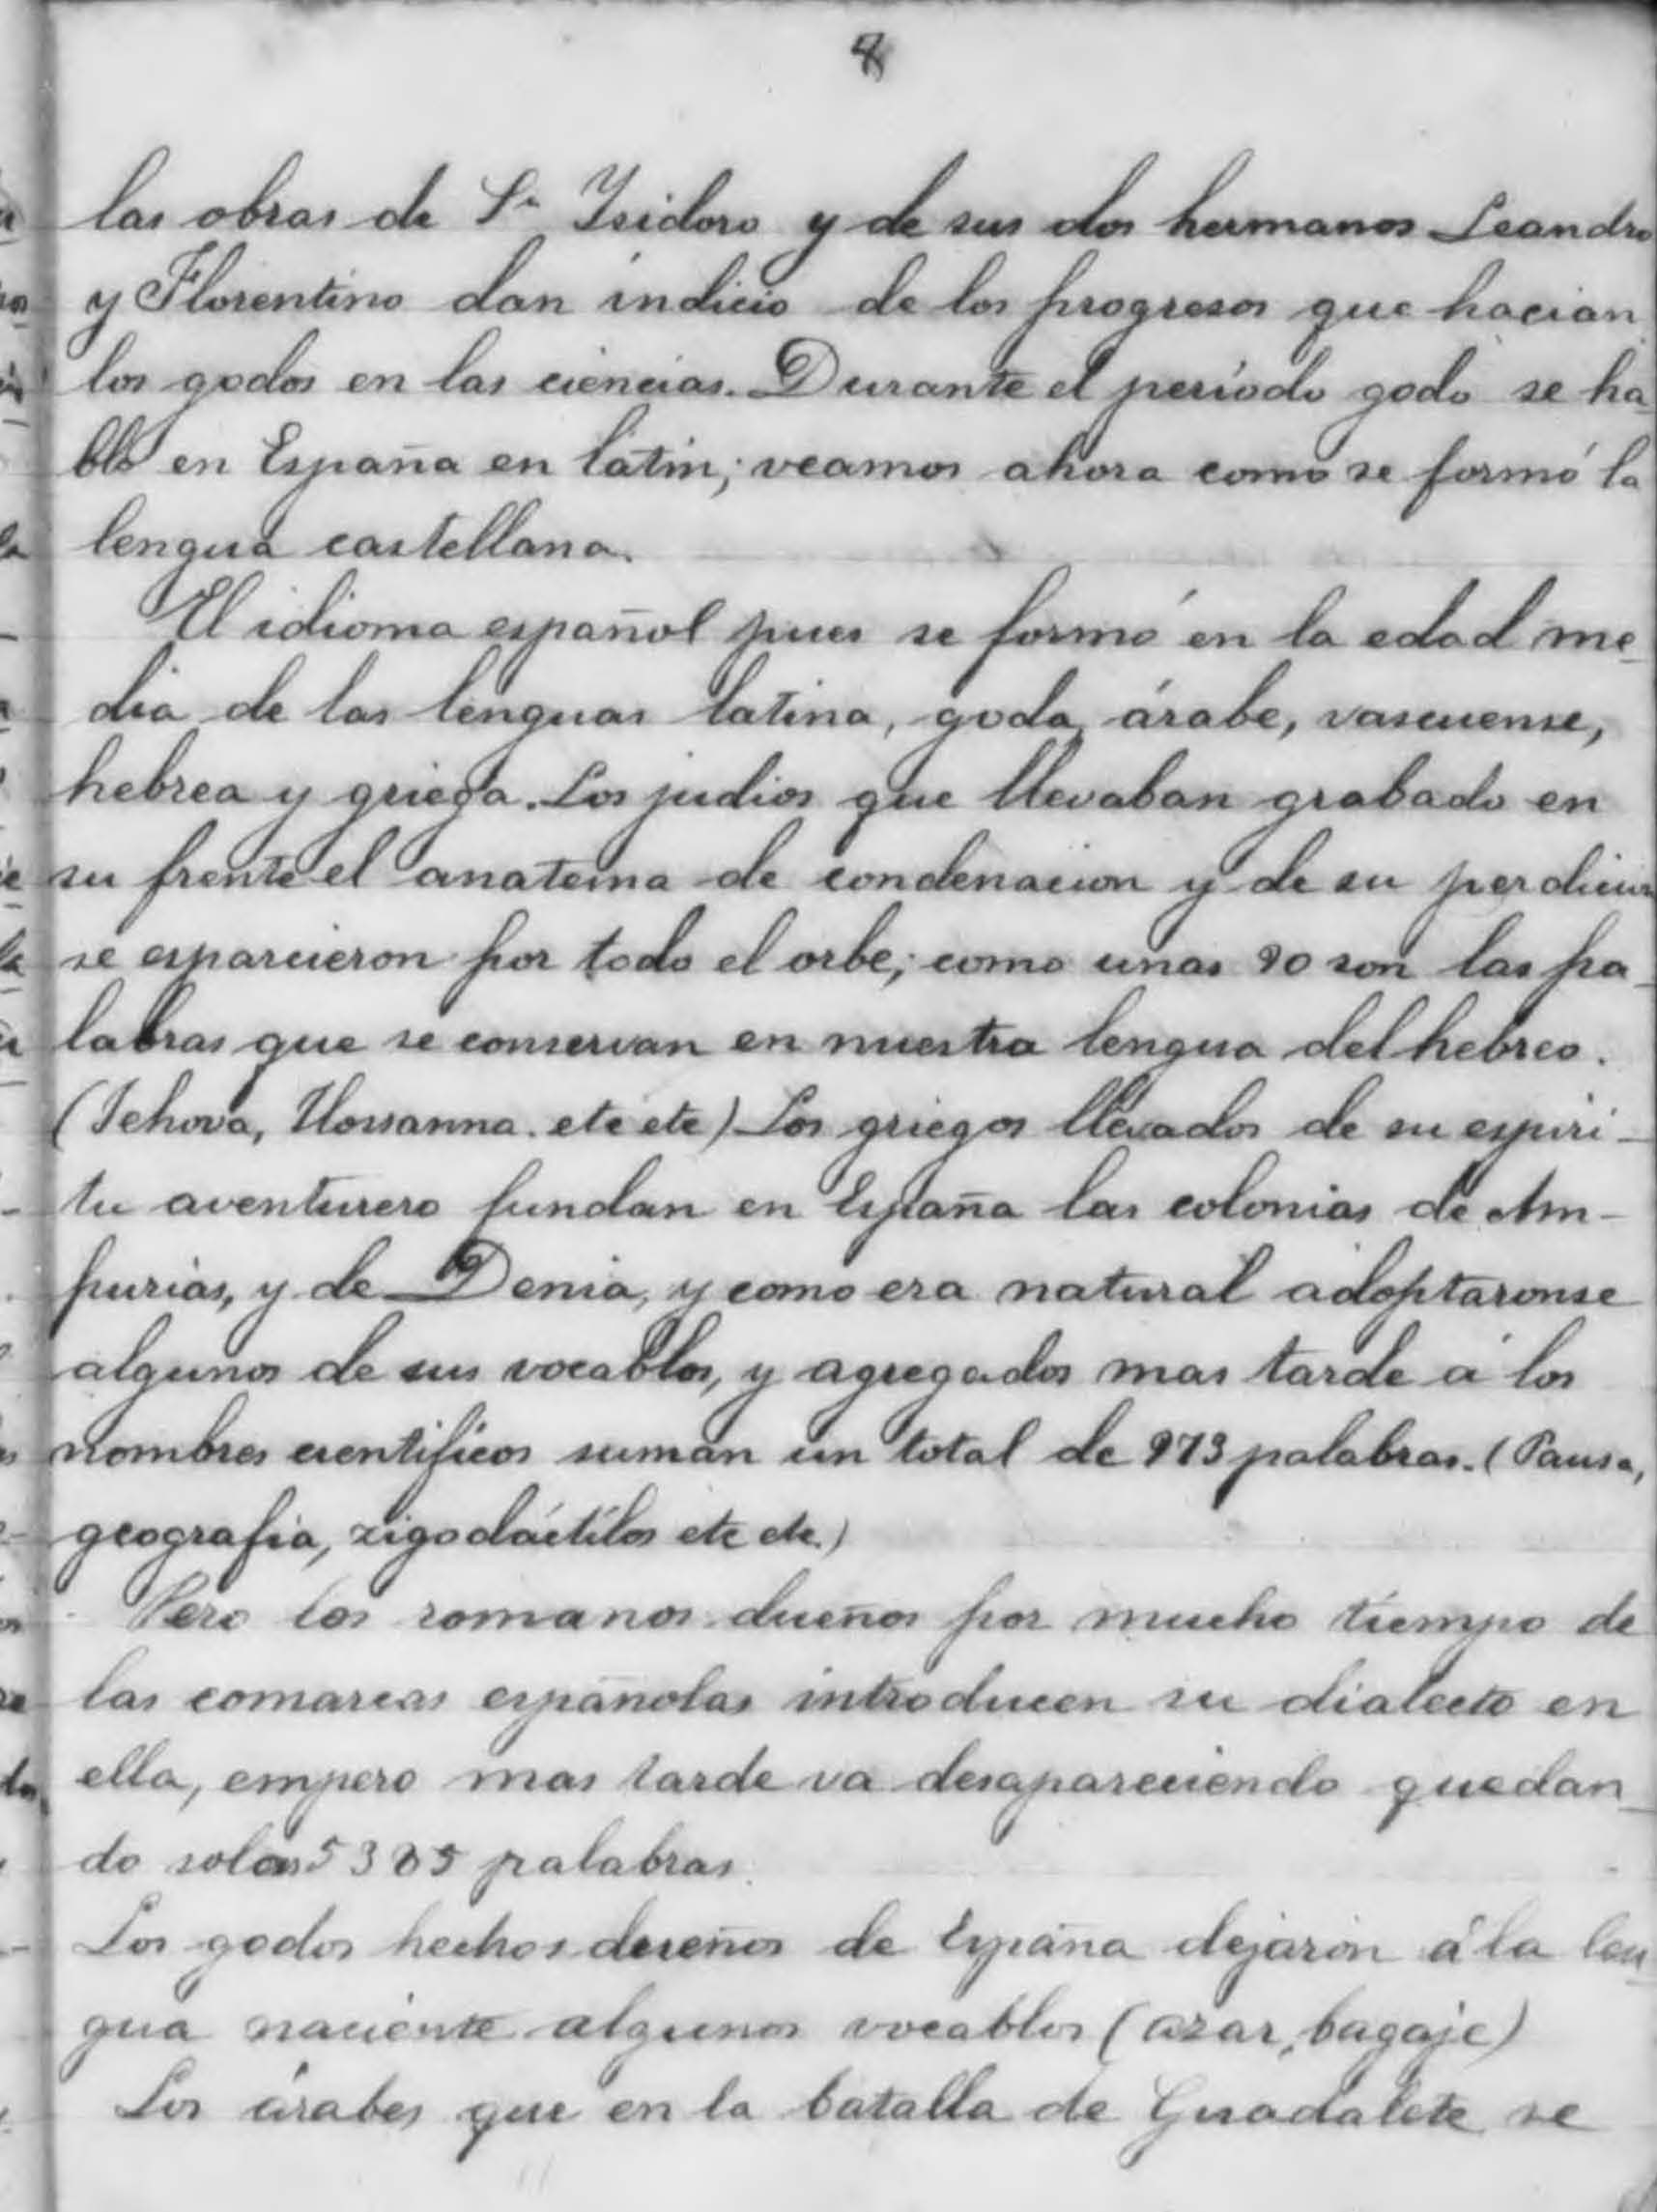 8
las obras de Sn Isidoro y de sus dos hermanos Leandro
y Florentino dan indicio de los progresos que hacian
los godos en las ciencias. Durante el período godo se ha
bló en España en latin; veamos ahora como se formó la
lengua castellana.
El idioma español pues se formó en la edad me_
dia de las lenguas latina, goda, árabe, vascuense,
hebrea y griega. Los judios que llevaban grabado en
su frente el anatema de condenacion y de su perdicion
se esparcieron por todo el orbe; como unas 90 son las pa_
labras que se conservan en nuestra lengua del hebreo.
(Jehova, Hossanna. etc etc) Los griegos llevados de su espiri-
tu aventurero fundan en España las colonias de Am-
purias, y de Denia, y como era natural adoptaronse
algunos de sus vocablos, y agregados mas tarde á los
nombres cientificos suman un total de 973 palabras. (Pausa,
geografia, zigodáctilos etc etc.)
Pero los romanos dueños por mucho tiempo de
las comarcas españolas introducen su dialecto en
ella, empero mas tarde va desapareciendo quedan_
do solas 5385 palabras.
Los godos hechos dueños de España dejaron á la len_
gua naciente algunos vocablos (azar, bagaje)
Los árabes que en la batalla de Guadalete se